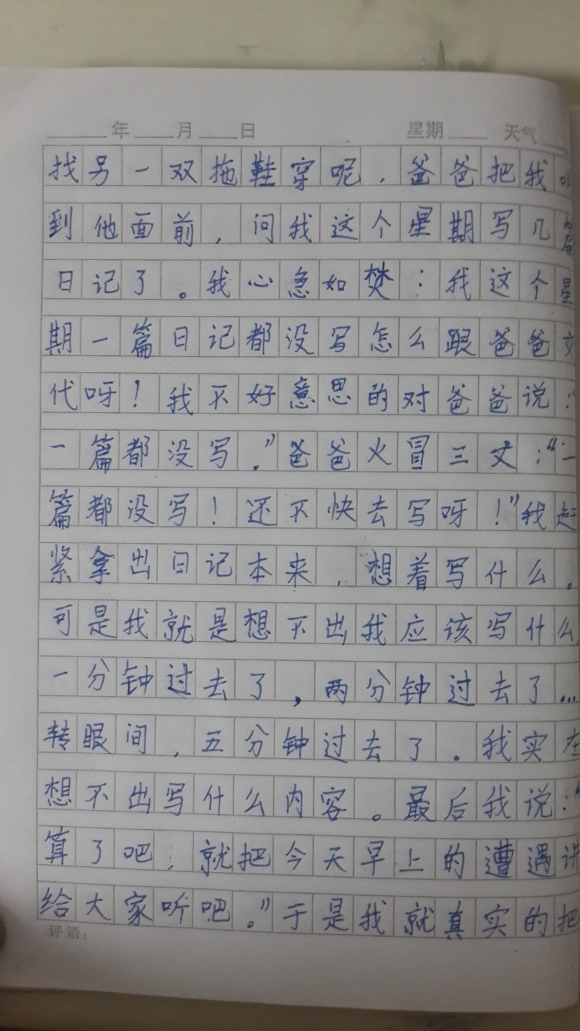 年 月 日 星期 天气
找另一双拖鞋穿呢，爸爸把我
到他面前，问我这个星期写几篇
日记了。我心急如焚：我这个星
期一篇日记都没写怎么跟爸爸交
代呀！我不好意思的对爸爸说：“
一篇都没写.”爸爸火冒三丈：“一
篇都没写！还不快去写呀！”我赶
紧拿出日记本来，想着写什么。
可是我就是想不出我应该写什么
一分钟过去了，两分钟过去了…
转眼间，五分钟过去了。我实在
想不出写什么内容。最后我说：“
算了吧，就把今天早上的遭遇讲
给大家听吧。”于是我就真实的把
评语：